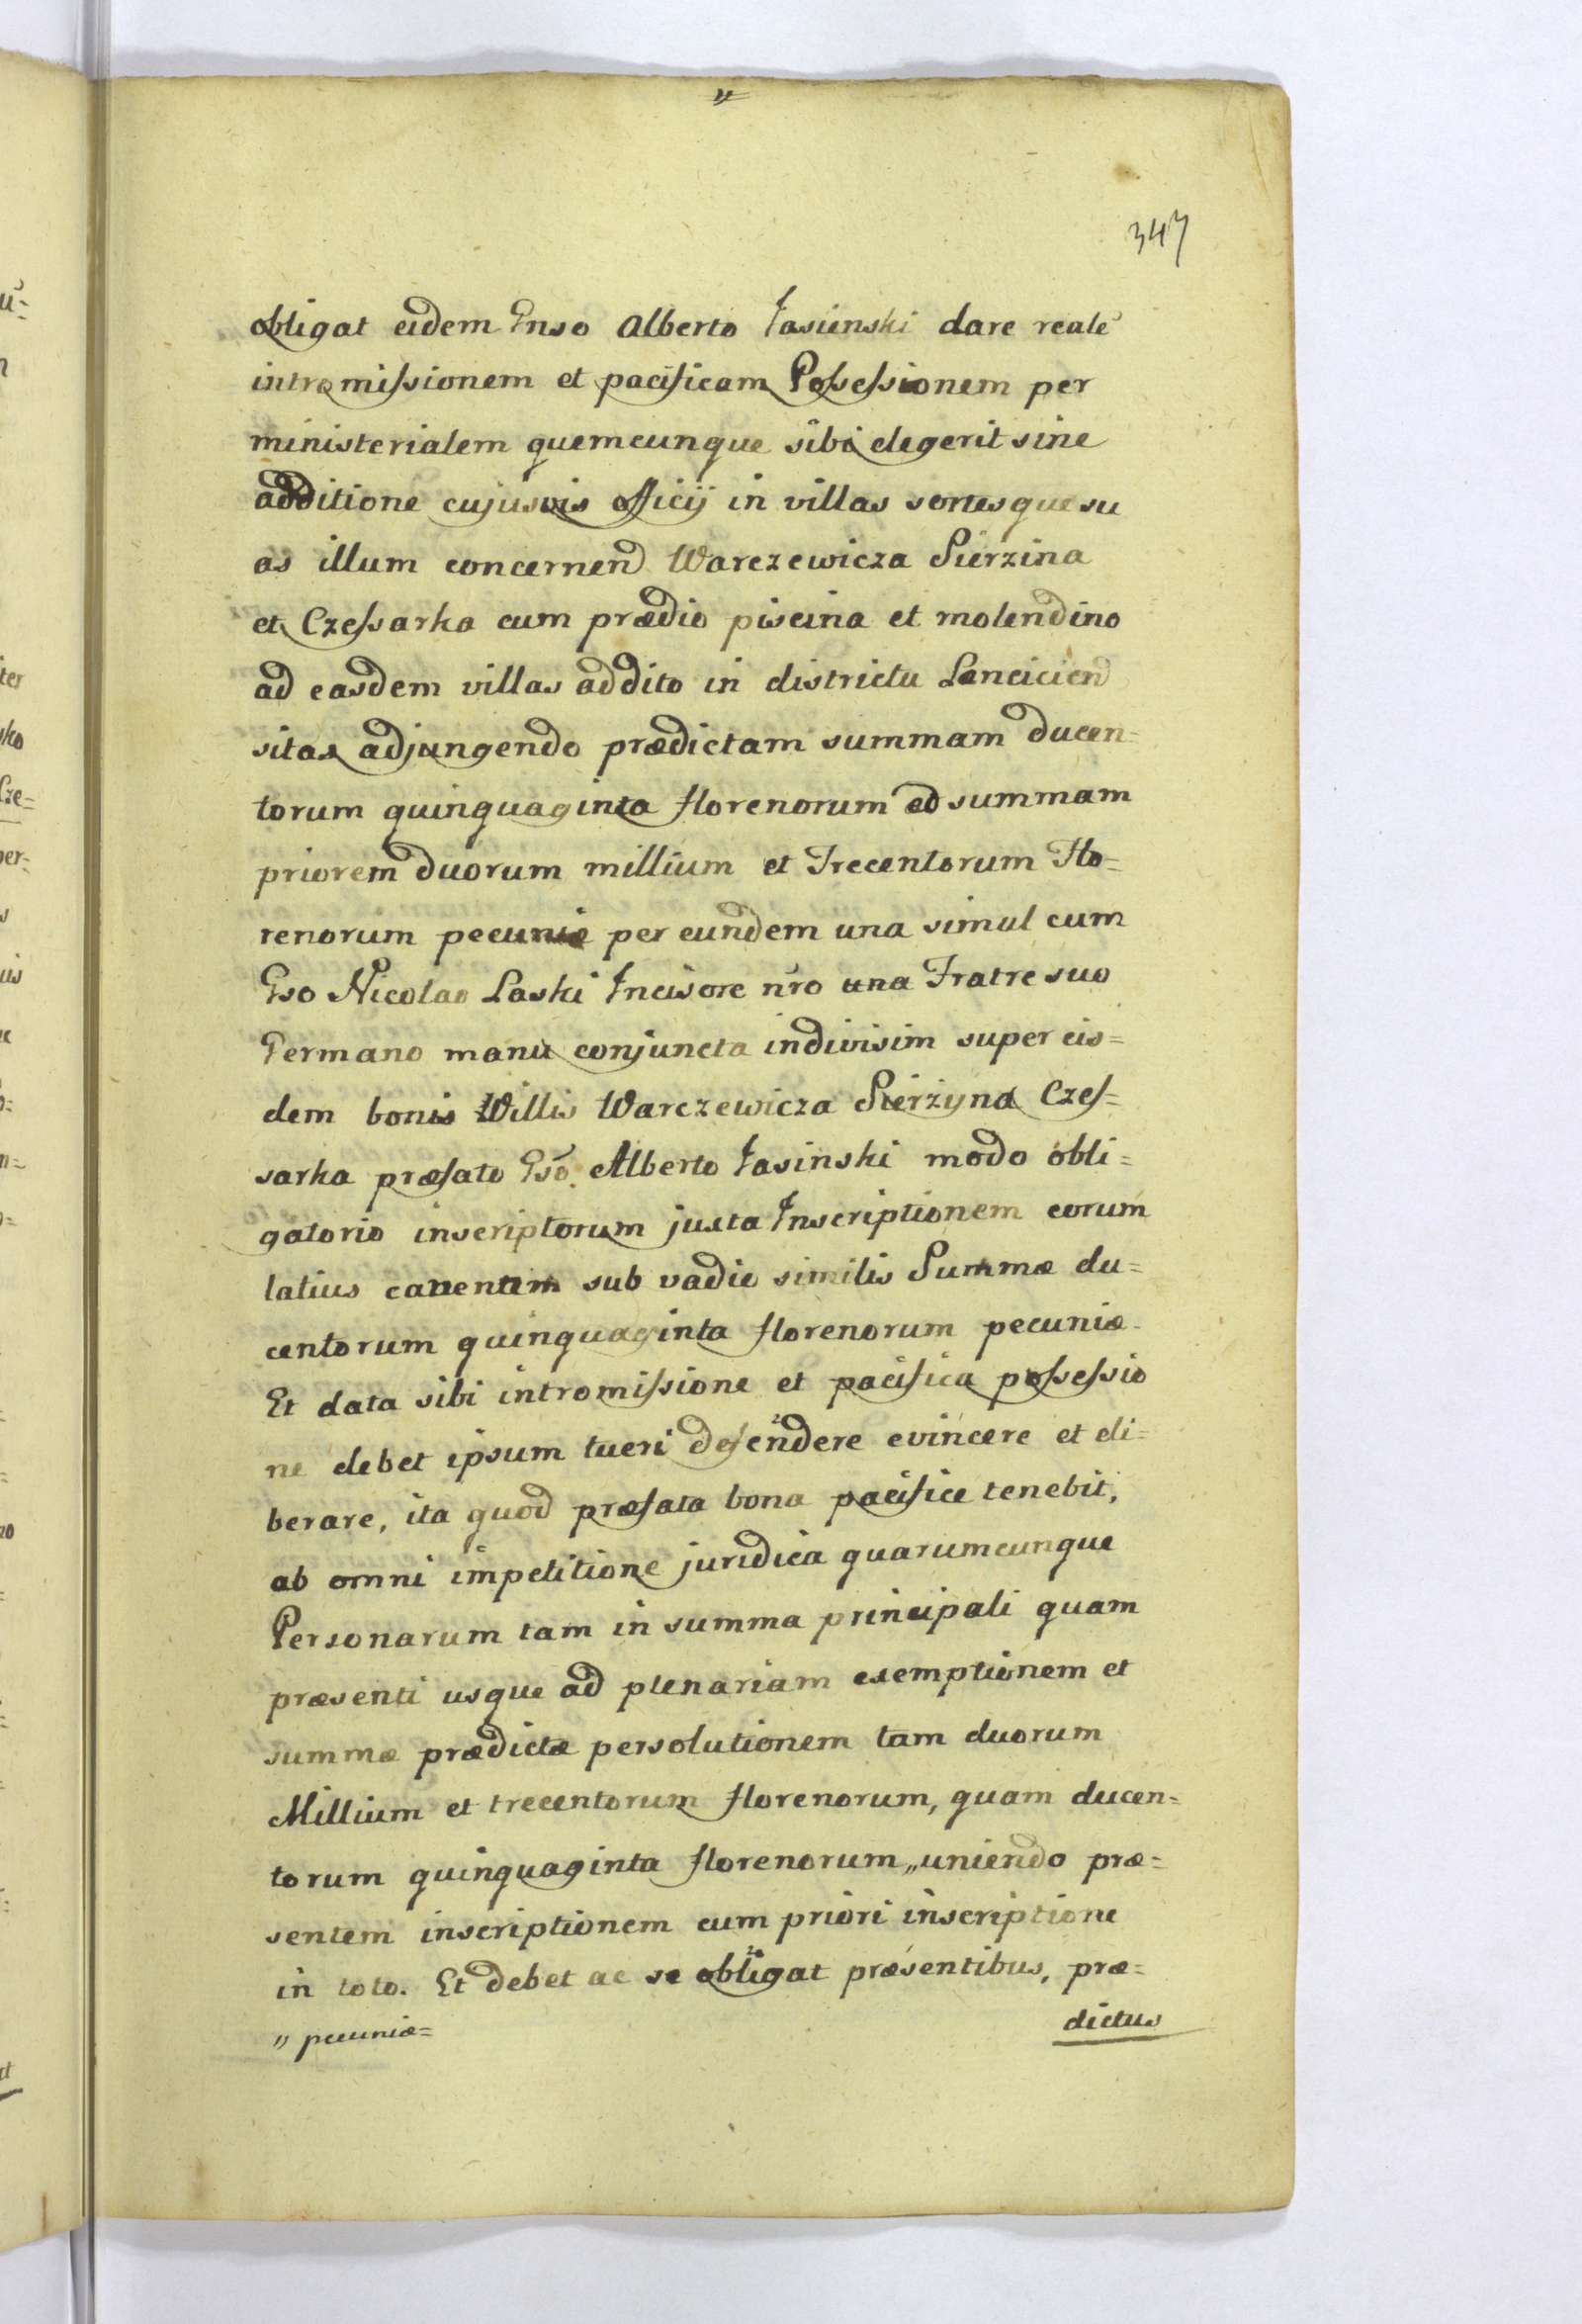 "
347
obligat eidem Gnso Alberto Jasienski dare realē
intromissionem et pacificam Possessionem per
ministerialem quemcunque sibi elegerit sine
additione cujusvis officij in villas sortesque su
as illum concernen̄d Warczewicza Sierzina
et Czessarka cum prædio piscina et molendino
ad easdem villas addito in districtu Lancicien̄
sitas adjungendo prædictam summam ducen=
torum quinquaginta florenorum ad summam
priorem duorum millium et Trecentorum Flo=
renorum pecuniæ per eundem una simul cum
Gso Nicolao Laski Incisore nr̃o una Fratre suo
Germano manu conjuncta indivisim super eis=
dem bonis Willis Warczewicza Sierżyna Czes=
sarka præfato Gso. Alberto Jasinski modo obli=
gatorio inscriptorum juxta Inscriptionem eorum
latius canentem sub vadio similis Summæ du=
centorum quinquaginta florenorum pecuniæ.
Et data sibi intromissione et pacifica possessio
ne debet ipsum tueri defendere evincere et eli=
berare, ita quod præfata bona pacifice tenebit,
ab omni impetitione juridica quarumcunque
Personarum tam in summa principali quam
præsenti usque ad plenariam exemptionem et
summæ prædictæ persolutionem tam duorum
Millium et trecentorum florenorum, quam ducen=
torum quinquaginta florenorum „ uniendo præ=
sentem inscriptionem cum priori inscriptione
in toto. Et debet ac se obligat præsentibus, præ=
" pecuniæ=
dictus